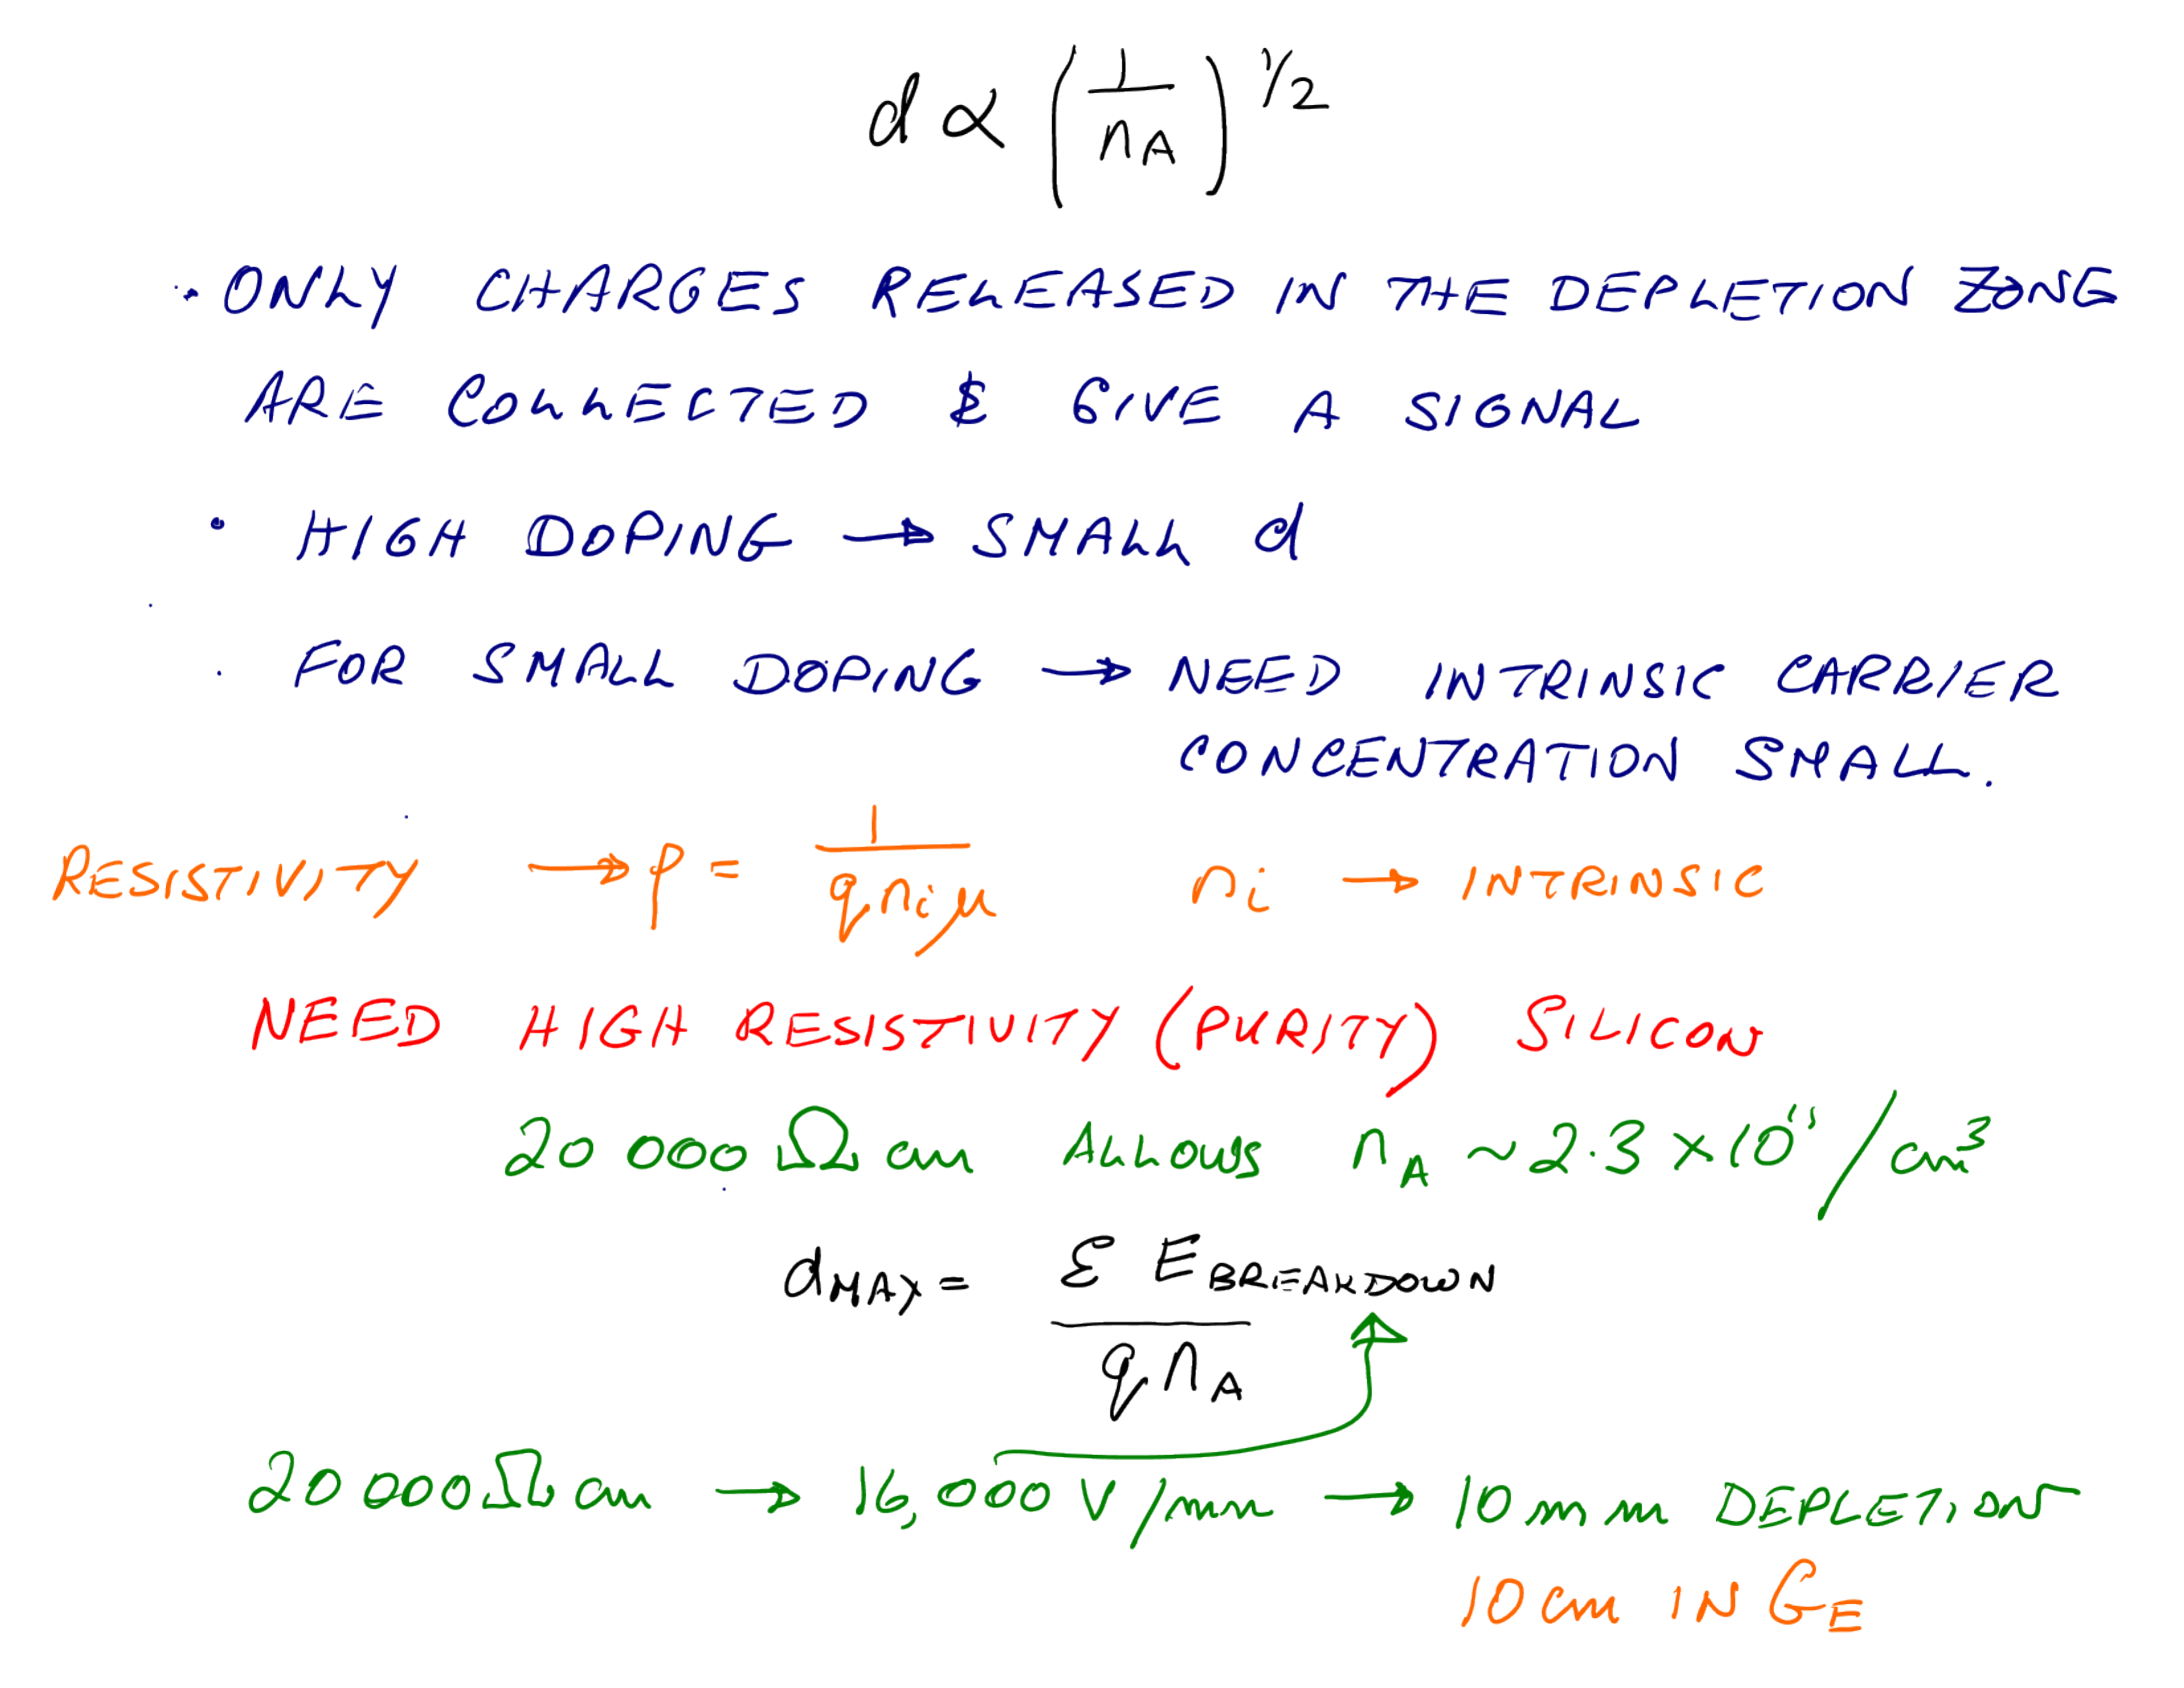 d ∝ (1/n_A)^1/2
· ONLY CHARGES RELEASED IN THE DEPLETION ZONE
ARE COLLECTED & GIVE A SIGNAL
• HIGH DOPING → SMALL d
· FOR SMALL DOPING → NEED INTRINSIC CARRIER
CONCENTRATION SMALL.
RESISTIVITY → ρ = 1/(q n_i μ) n_i → INTRINSIC
NEED HIGH RESISTIVITY (PURITY) SILICON
20 000 Ω cm ALLOWS n_A ~ 2.3 × 10^11/cm^3
d_MAX = ε E_BREAKDOWN / (q n_A)
20 000 Ω cm → 16,000 V/mm → 10 mm DEPLETION
10 cm IN GE